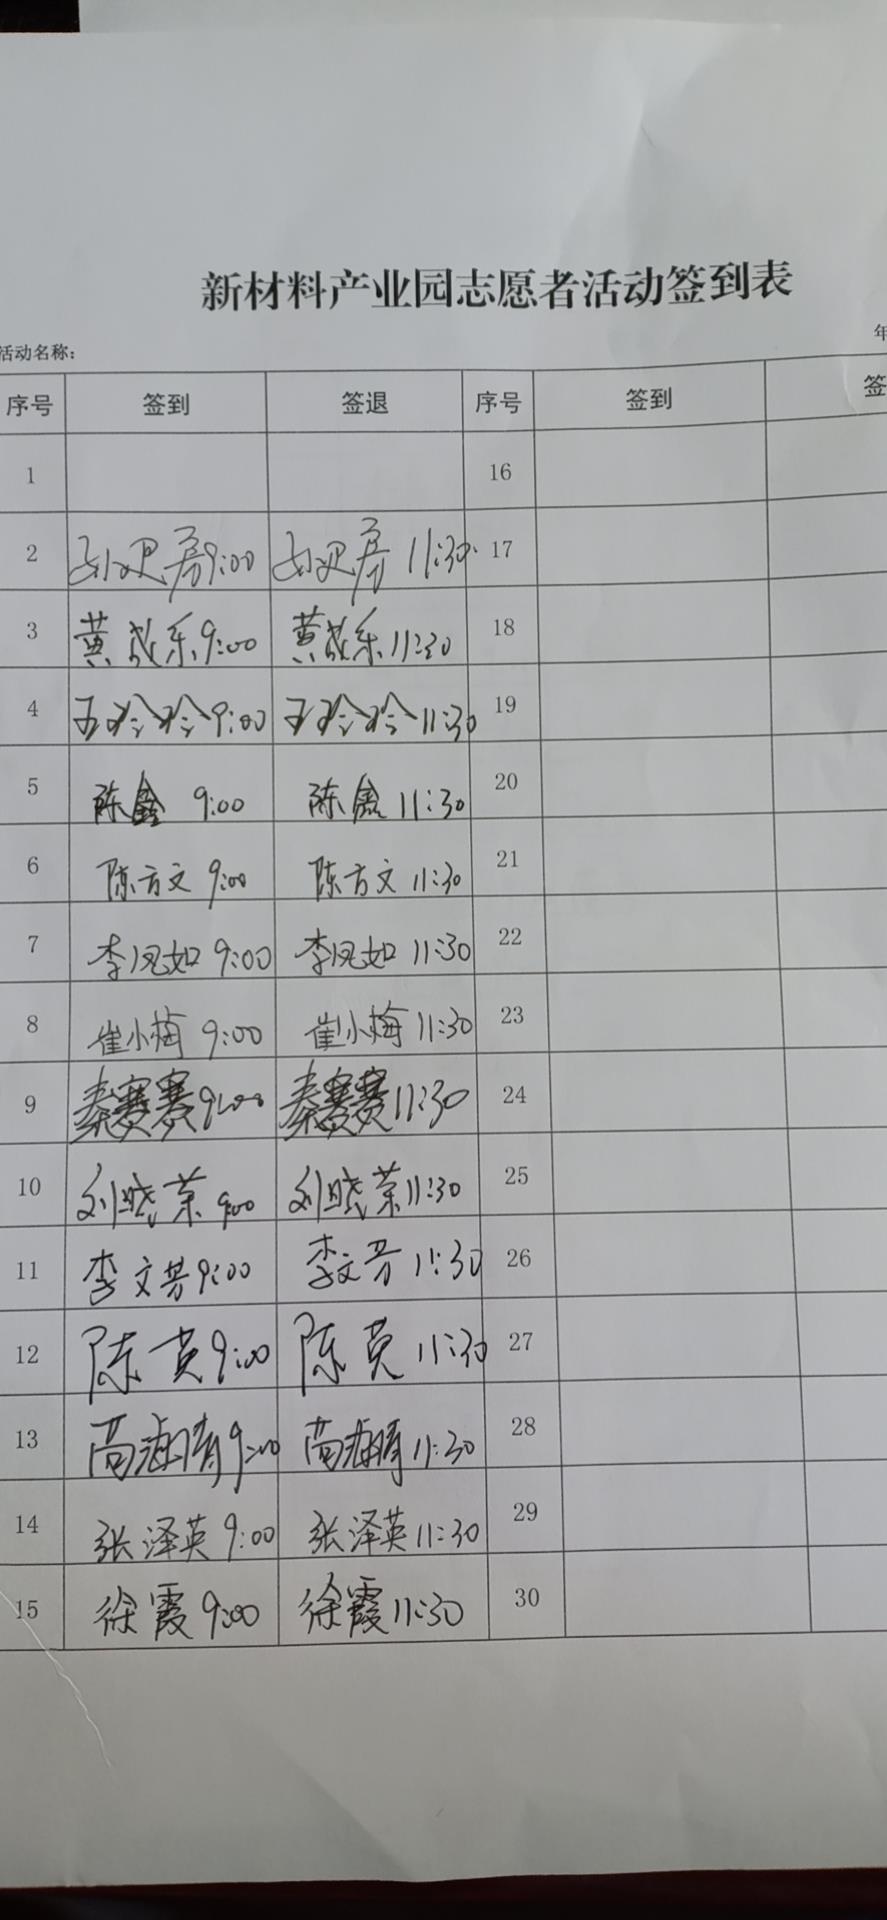 新材料产业园志愿者活动签到表
活动名称： 年
序号 签到 签退 序号 签到 签
1 16
2 9:00 11:30 17
3 黄成乐 9:00 黄成乐 11:30 18
4 王玲玲 9:00 王玲玲 11:30 19
5 陈鑫 9:00 陈鑫 11:30 20
6 陈方文 9:00 陈方文 11:30 21
7 李凤如 9:00 李凤如 11:30 22
8 崔小梅 9:00 崔小梅 11:30 23
9 秦赛赛 9:00 秦赛赛 11:30 24
10 刘晓荣 9:00 刘晓荣 11:30 25
11 李文芳 9:00 李文芳 11:30 26
12 陈英 9:00 陈英 11:30 27
13 高海晴 9:00 高海晴 11:30 28
14 张泽英 9:00 张泽英 11:30 29
15 徐霞 9:00 徐霞 11:30 30